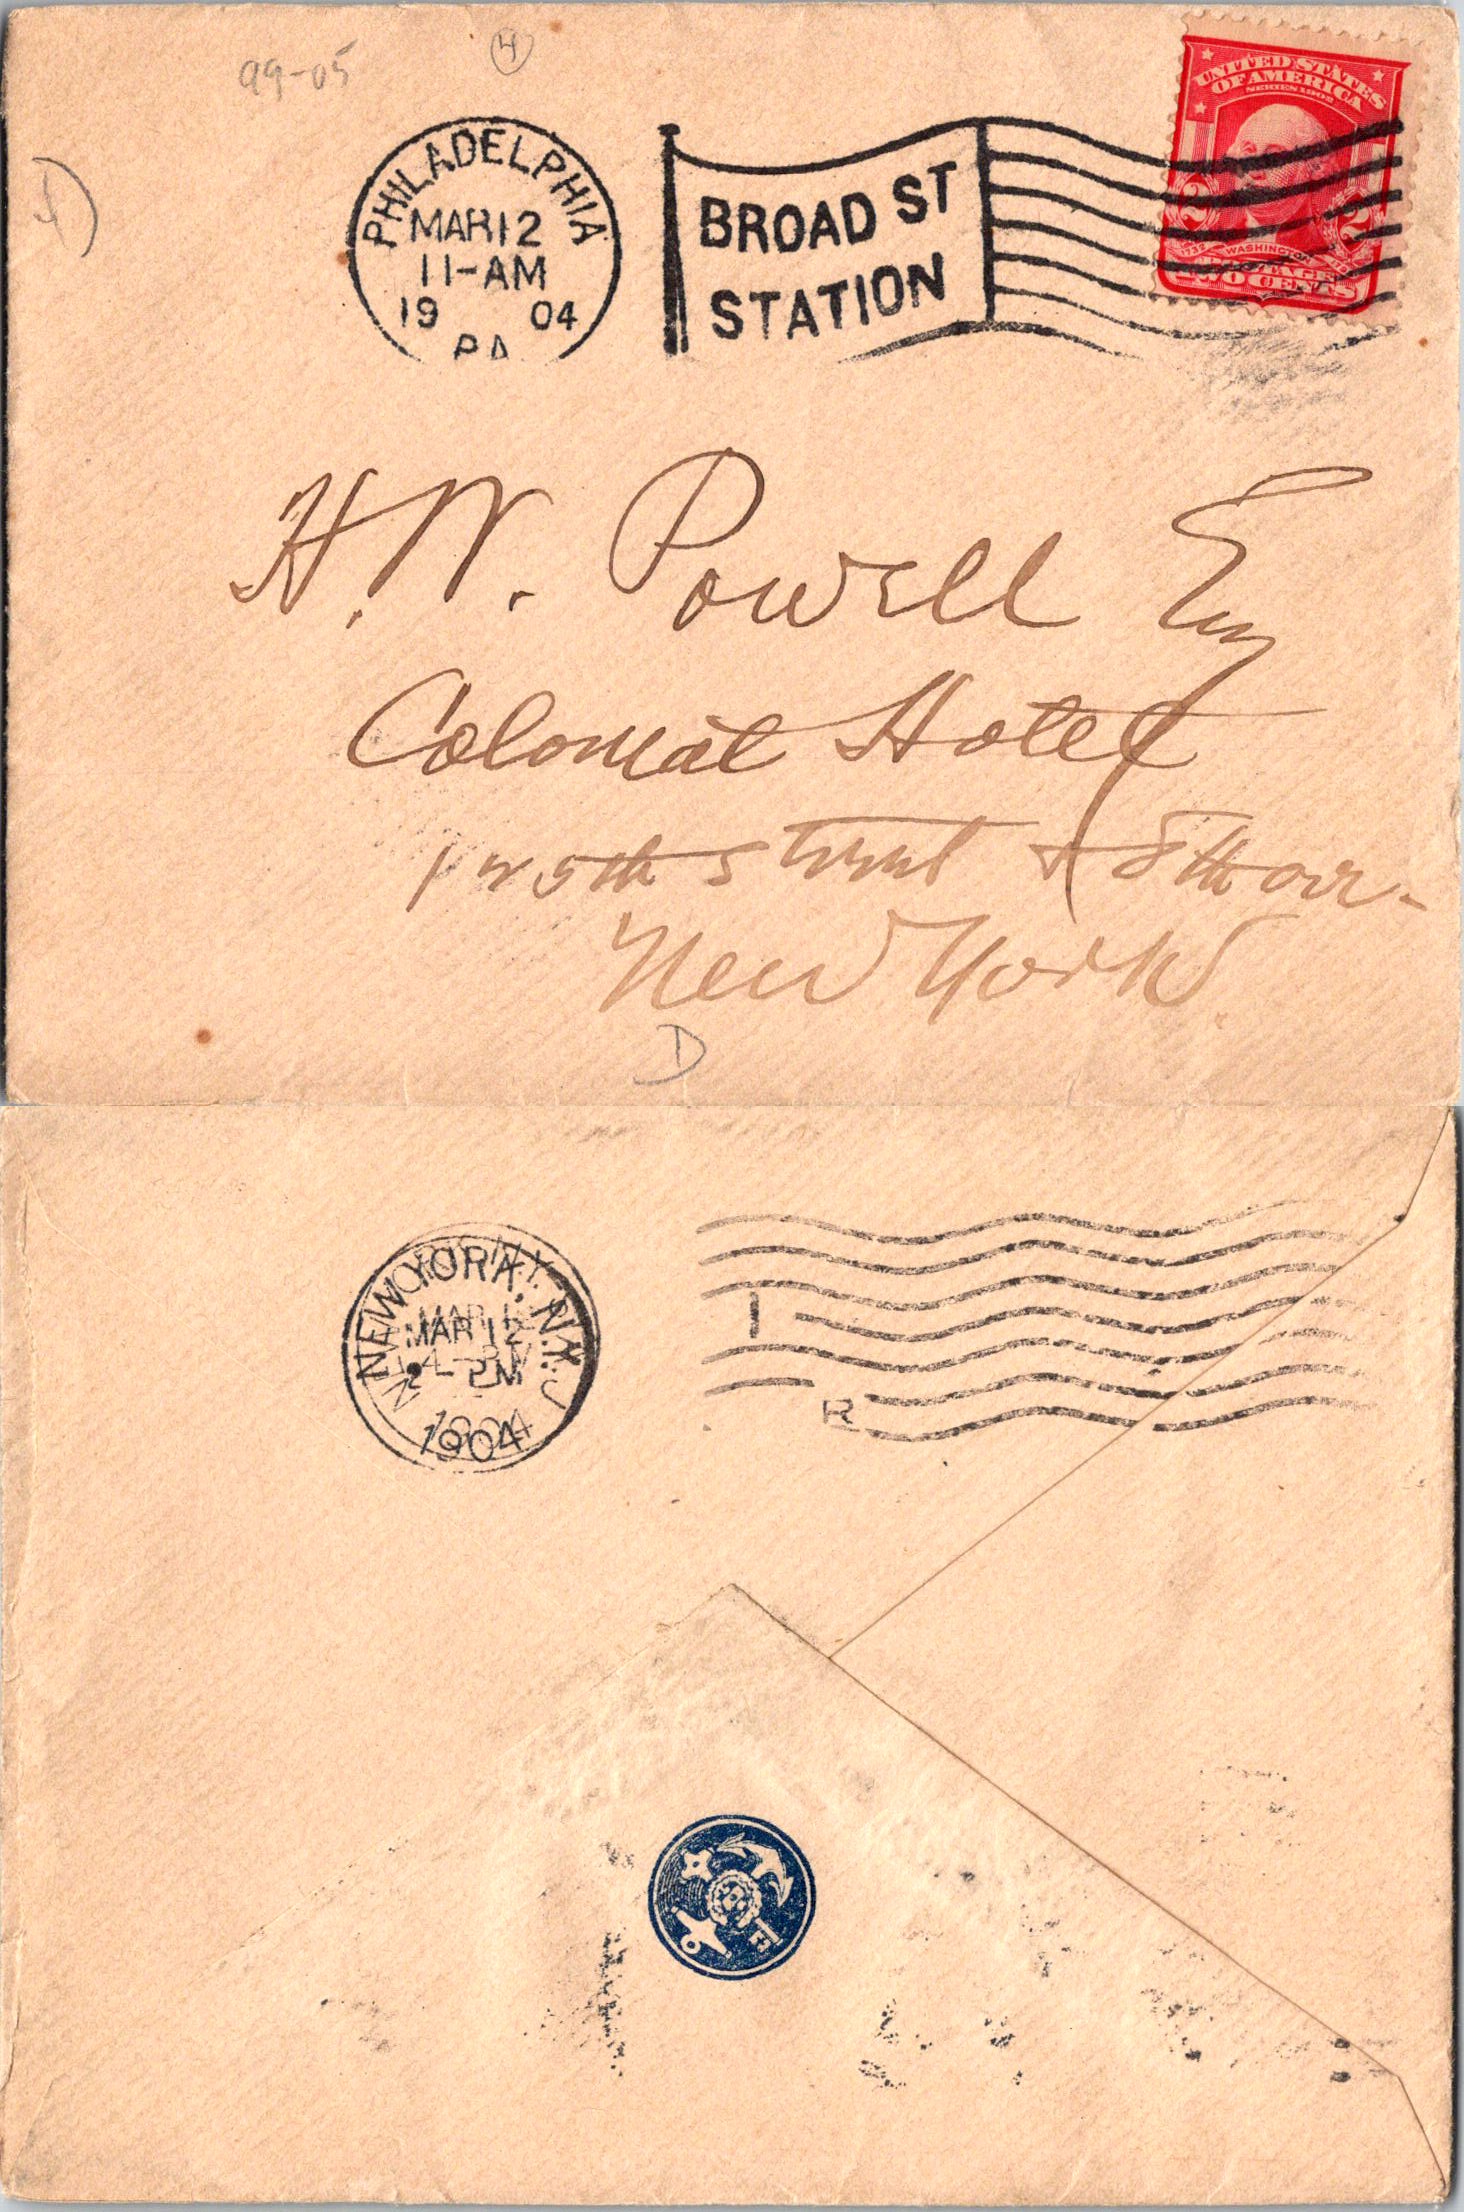 99-05
4
PHILADELPHIA
MAR 12
11-AM
19 04
PA
BROAD ST
STATION
UNITED STATES
OF AMERICA
SERIES 1902
2 2
1732 WASHINGTON
POSTAGE
TWO CENTS
H. W. Powell Esq
Colonial Hotel
125th Street & 8th Ave.
New York
D
NEW YORK, N.Y.
MAR 12
PM
1904
I
R